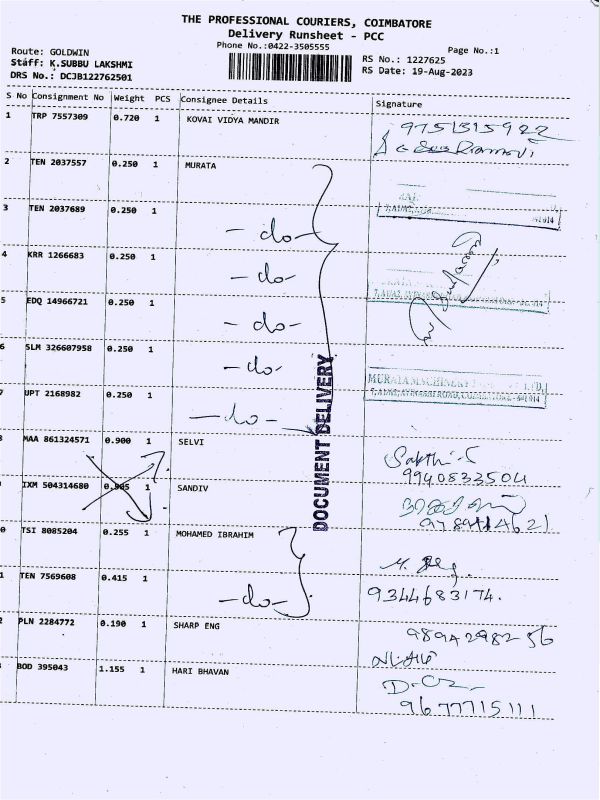 THE PROFESSIONAL COURIERS, COIMBATORE
Delivery Runsheet - PCC
Phone No.:0422-3505555
Page No.:1
Route: GOLDWIN
Staff: K.SUBBU LAKSHMI
DRS No.: DCJB122762501
RS No.: 1227625
RS Date: 19-Aug-2023
S No Consignment No Weight PCS Consignee Details Signature
1 TRP 7557309 0.720 1 KOVAI VIDYA MANDIR 9751315922
2 TEN 2037557 0.250 1 MURATA
3 TEN 2037689 0.250 1 -do-
4 KRR 1266683 0.250 1 -do-
5 EDQ 14966721 0.250 1 -do-
6 SLM 326607958 0.250 1 -do-
7 UPT 2168982 0.250 1 -do-
MURATA MACHINERY
DOCUMENT DELIVERY
MAA 861324571 0.900 1 SELVI Sakthi
9940833504
IXM 504314680 1 SANDIV
TSI 8085204 0.255 1 MOHAMED IBRAHIM
TEN 7569608 0.415 1 -do- 9344683174.
PLN 2284772 0.190 1 SHARP ENG
BOD 395043 1.155 1 HARI BHAVAN
9677715111